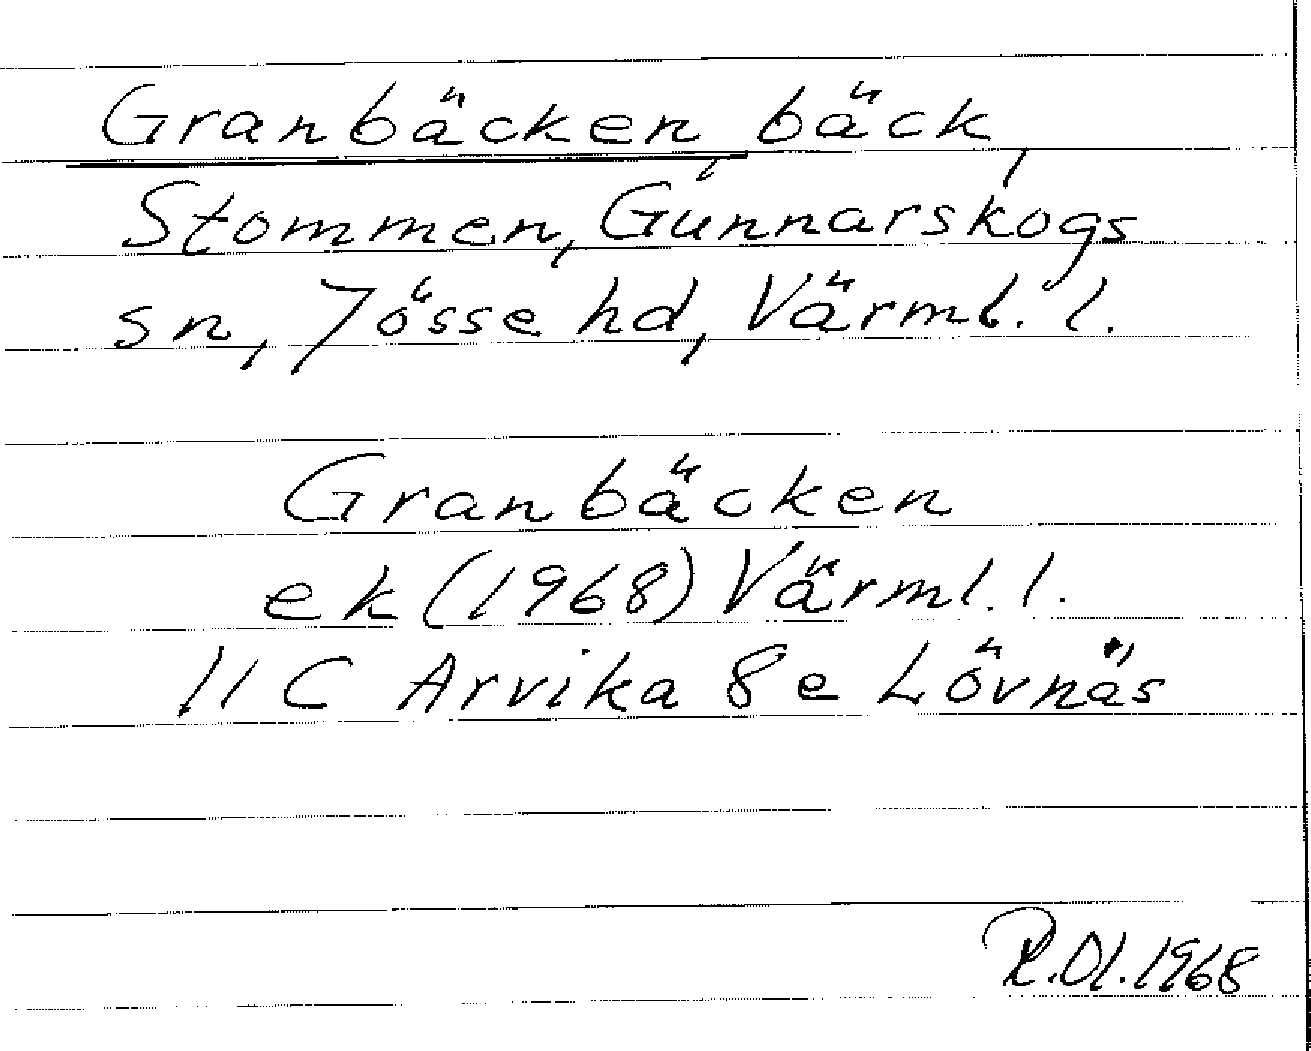 Granbäcken, bäck,
Stommen, Gunnarskogs
sn, Jösse hd, Värml. l.
Granbäcken
ek (1968) Värml. l.
11 C Arvika 8 e Lövnäs
R.Ol.1968